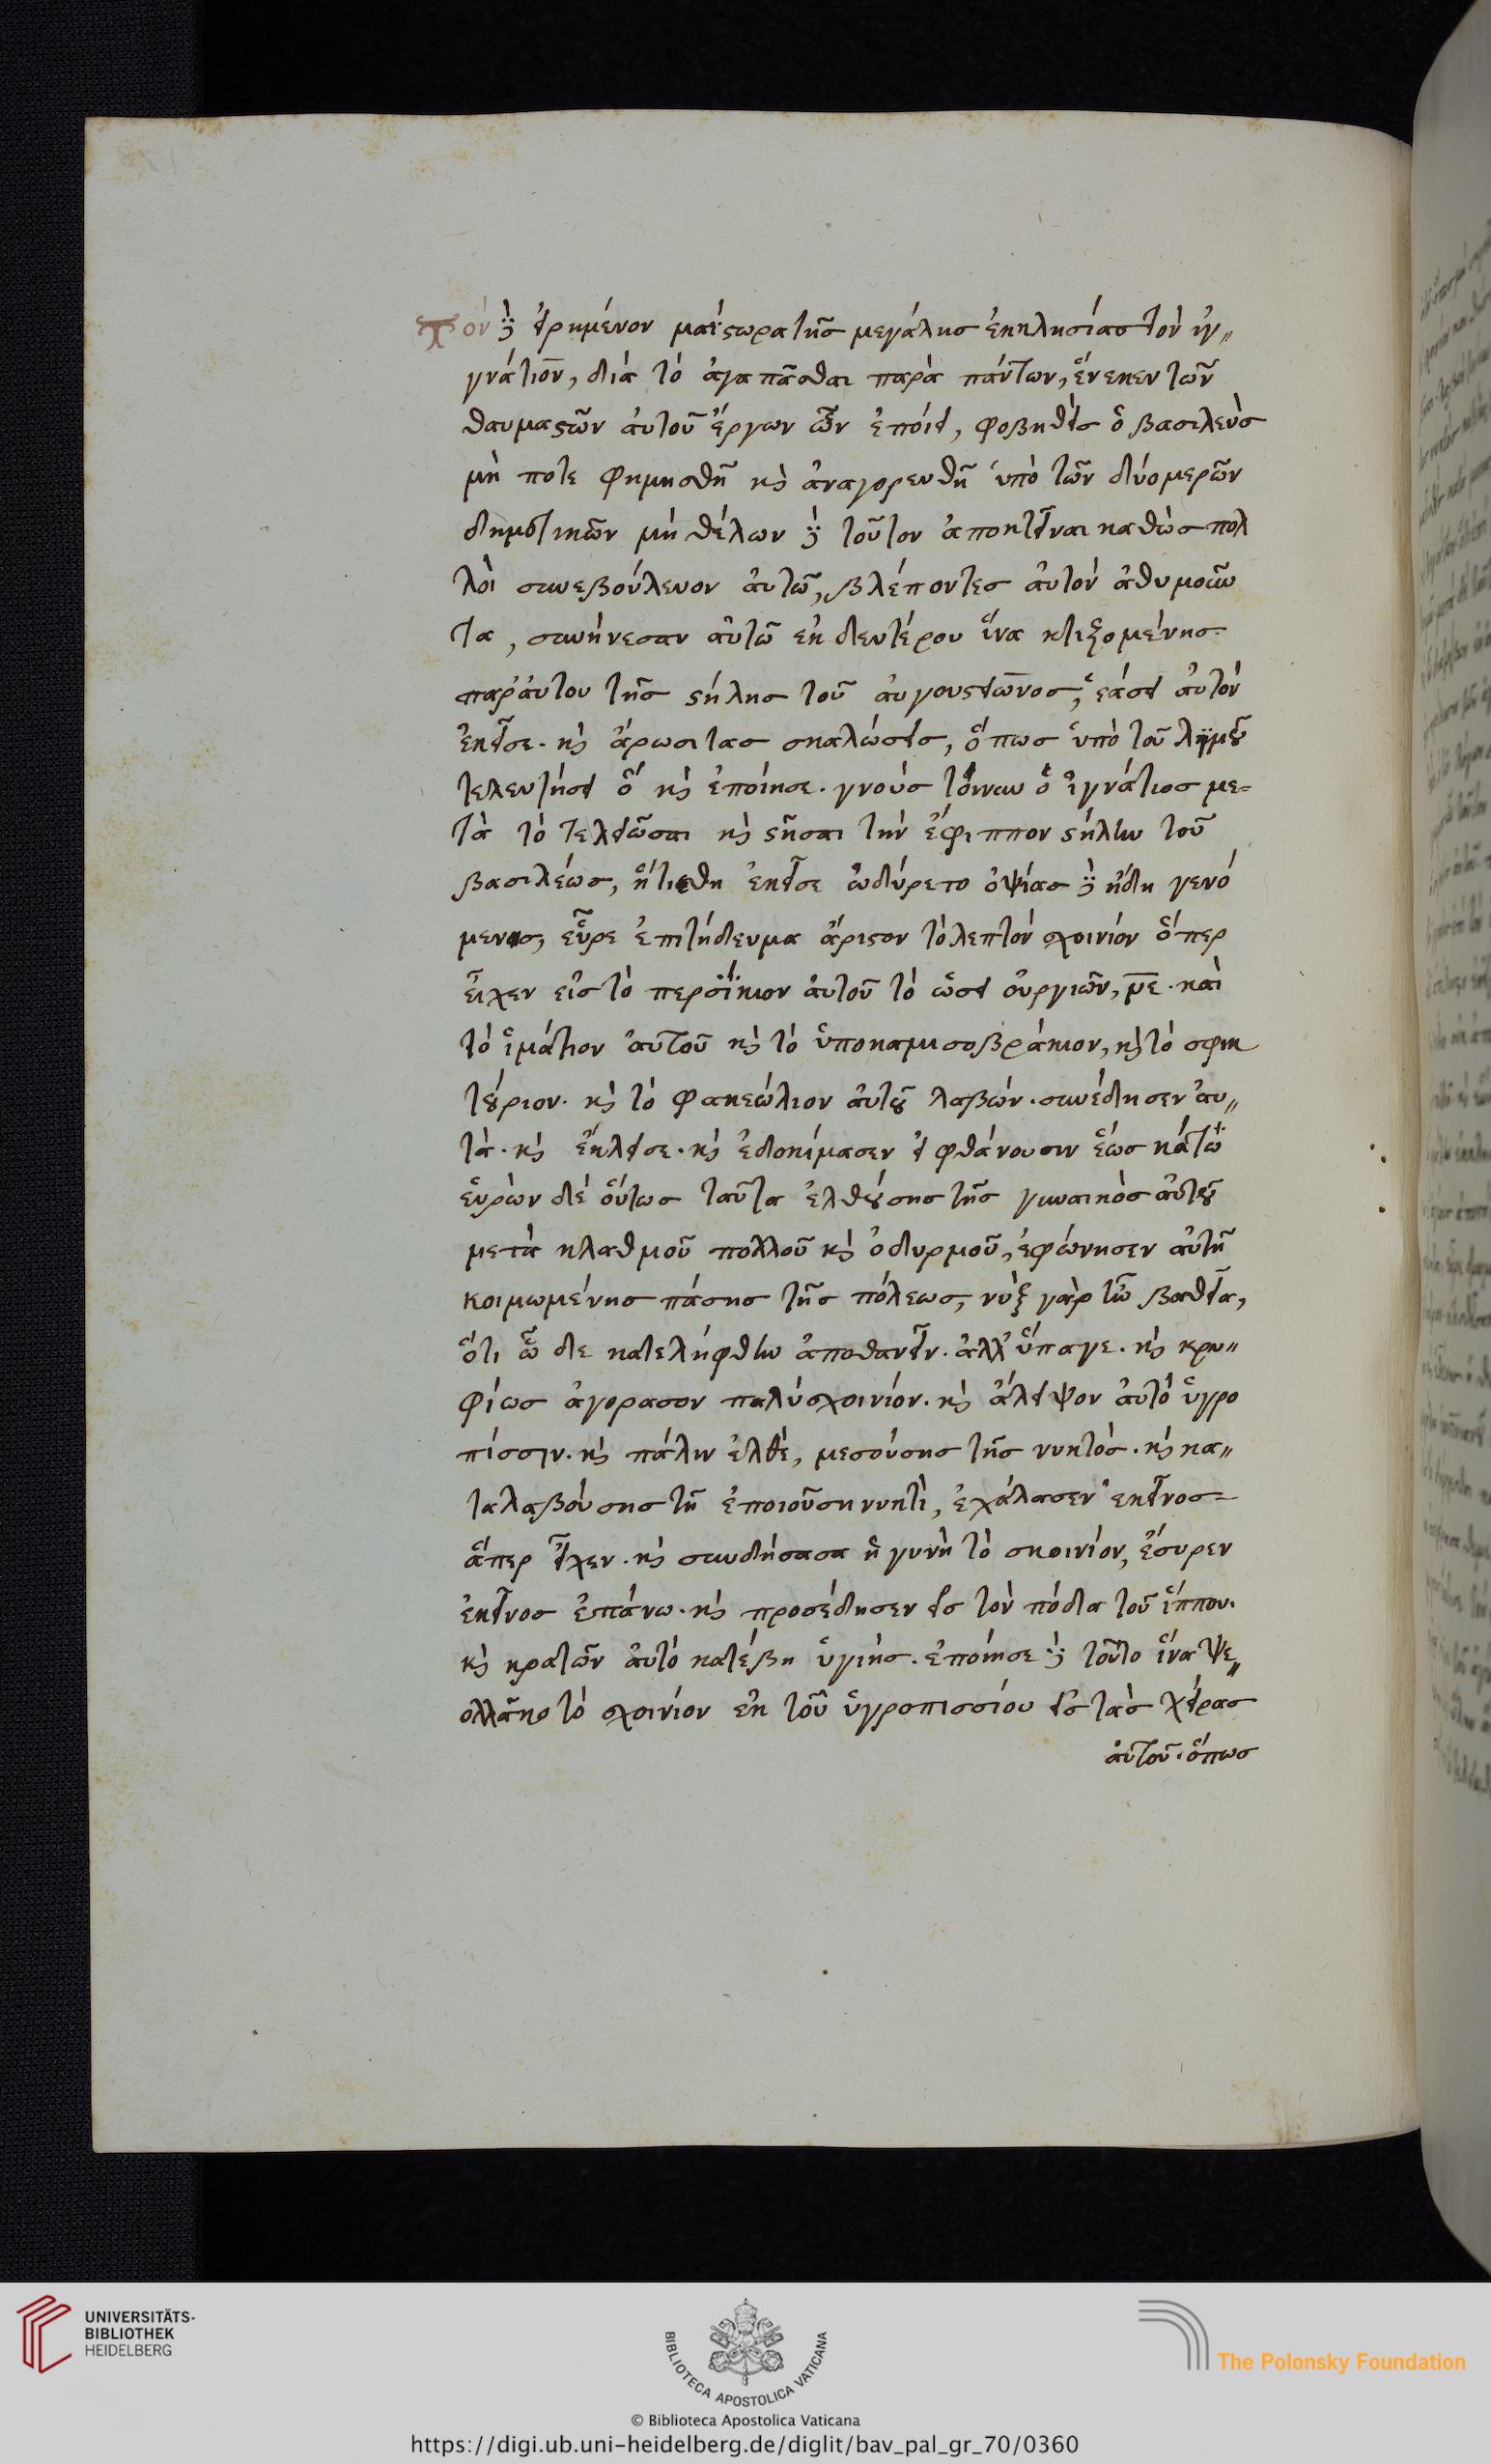 Τὸν δὲ εἰρημένον μαΐστωρα τῆς μεγάλης ἐκκλησίας τὸν ἰγ〃
γνάτιον, διὰ τὸ ἀγαπᾶσθαι παρὰ πάντων, ἕνεκεν τῶν
θαυμαστῶν αὐτοῦ ἔργων ὧν ἐποίει, φοβηθεὶς ὁ βασιλεὺς
μή ποτε φημισθῆ καὶ ἀναγορευθῆ ὑπὸ τῶν δύο μερῶν
δημοτικῶν μὴ θέλων δὲ τοῦτον ἀποκτεῖναι καθὼς πολ
λοὶ συνεβούλευον αὐτῶ, βλέποντες αὐτὸν ἀθυμοῦν
τα, συνήνεσαν αὐτῶ ἐκ δευτέρου ἵνα κτιζομένης
παρ' αὐτου τῆς στήλης τοῦ αὐγουστεῶνος, ἐάσει αὐτὸν
ἐκεῖσε. καὶ ἄρωσι τας σκαλώσεις, ὅπως ὑπὸ τοῦ λιμοῦ
τελευτήσει ὃ καὶ ἐποίησε. γνοὺς τοίνυν ὁ ἰγνάτιος με=
τὰ τὸ τελειῶσαι καὶ στῆσαι τὴν ἔφιππον στήλην τοῦ
βασιλέως, ὅτι ἐκεῖσε ὠδύρετο ὀψίας δὲ ἤδη γενό
μενης, εὗρε ἐπιτήδευμα ἄριστον τὸ λεπτὸν σχοινίον ὅπερ
εἶχεν εἰς τὸ περσίκιον αὐτοῦ τὸ ὡσεὶ οὐργιῶν, με. καὶ
τὸ ἱμάτιον αὐτοῦ καὶ τὸ ὑποκαμισοβράκιον, καὶ τὸ σφικ
τούριον. καὶ τὸ φακεώλιον αὐτοῦ λαβών. συνέδησεν αὐ〃
τά. καὶ ἔκλεισε. καὶ ἐδοκίμασεν εἰ φθάνουσιν ἕως κάτω
εὑρὼν δὲ οὕτως ταῦτα ἐλθούσης τῆς γυναικὸς αὐτοῦ
μετὰ κλαθμοῦ πολλοῦ καὶ ὀδυρμοῦ, ἐφώνησεν αὐτῆ
κοιμωμένης πάσης τῆς πόλεως, νὺξ γὰρ ἦν βαθεῖα,
ὅτι ὧδε κατελήφθην ἀποθανεῖν. ἀλλ' ὕπαγε. καὶ κρυ〃
φίως ἀγόρασον παχύ σχοινίον. καὶ ἄλειψον αὐτὸ ὑγρο
πίσσιν. καὶ πάλιν ἐλθὲ, μεσούσης τῆς νυκτὸς. καὶ κα〃
ταλαβούσης τῆ ἐπιούση νυκτὶ, ἐχάλασεν ἐκεῖνος
ἅπερ εἶχεν. καὶ συνδήσασα ἡ γυνὴ τὸ σκοινίον, ἔσυρεν
ἐκεῖνος ἐπάνω. καὶ προσέδησεν εἰς τὸν πόδα τοῦ ἵππου.
καὶ κρατῶν αὐτὸ κατέβη ὑγιής. ἐποίησε δὲ τοῦτο ἵνα
κολλᾶται τὸ σχοινίον ἐκ τοῦ ὑγροπισσίου εἰς τὰς χεῖρας
αὐτοῦ. ὅπως
UNIVERSITÄTS-
BIBLIOTHEK
HEIDELBERG
BIBLIOTECA APOSTOLICA VATICANA
The Polonsky Foundation
© Biblioteca Apostolica Vaticana
https://digi.ub.uni-heidelberg.de/diglit/bav_pal_gr_70/0360